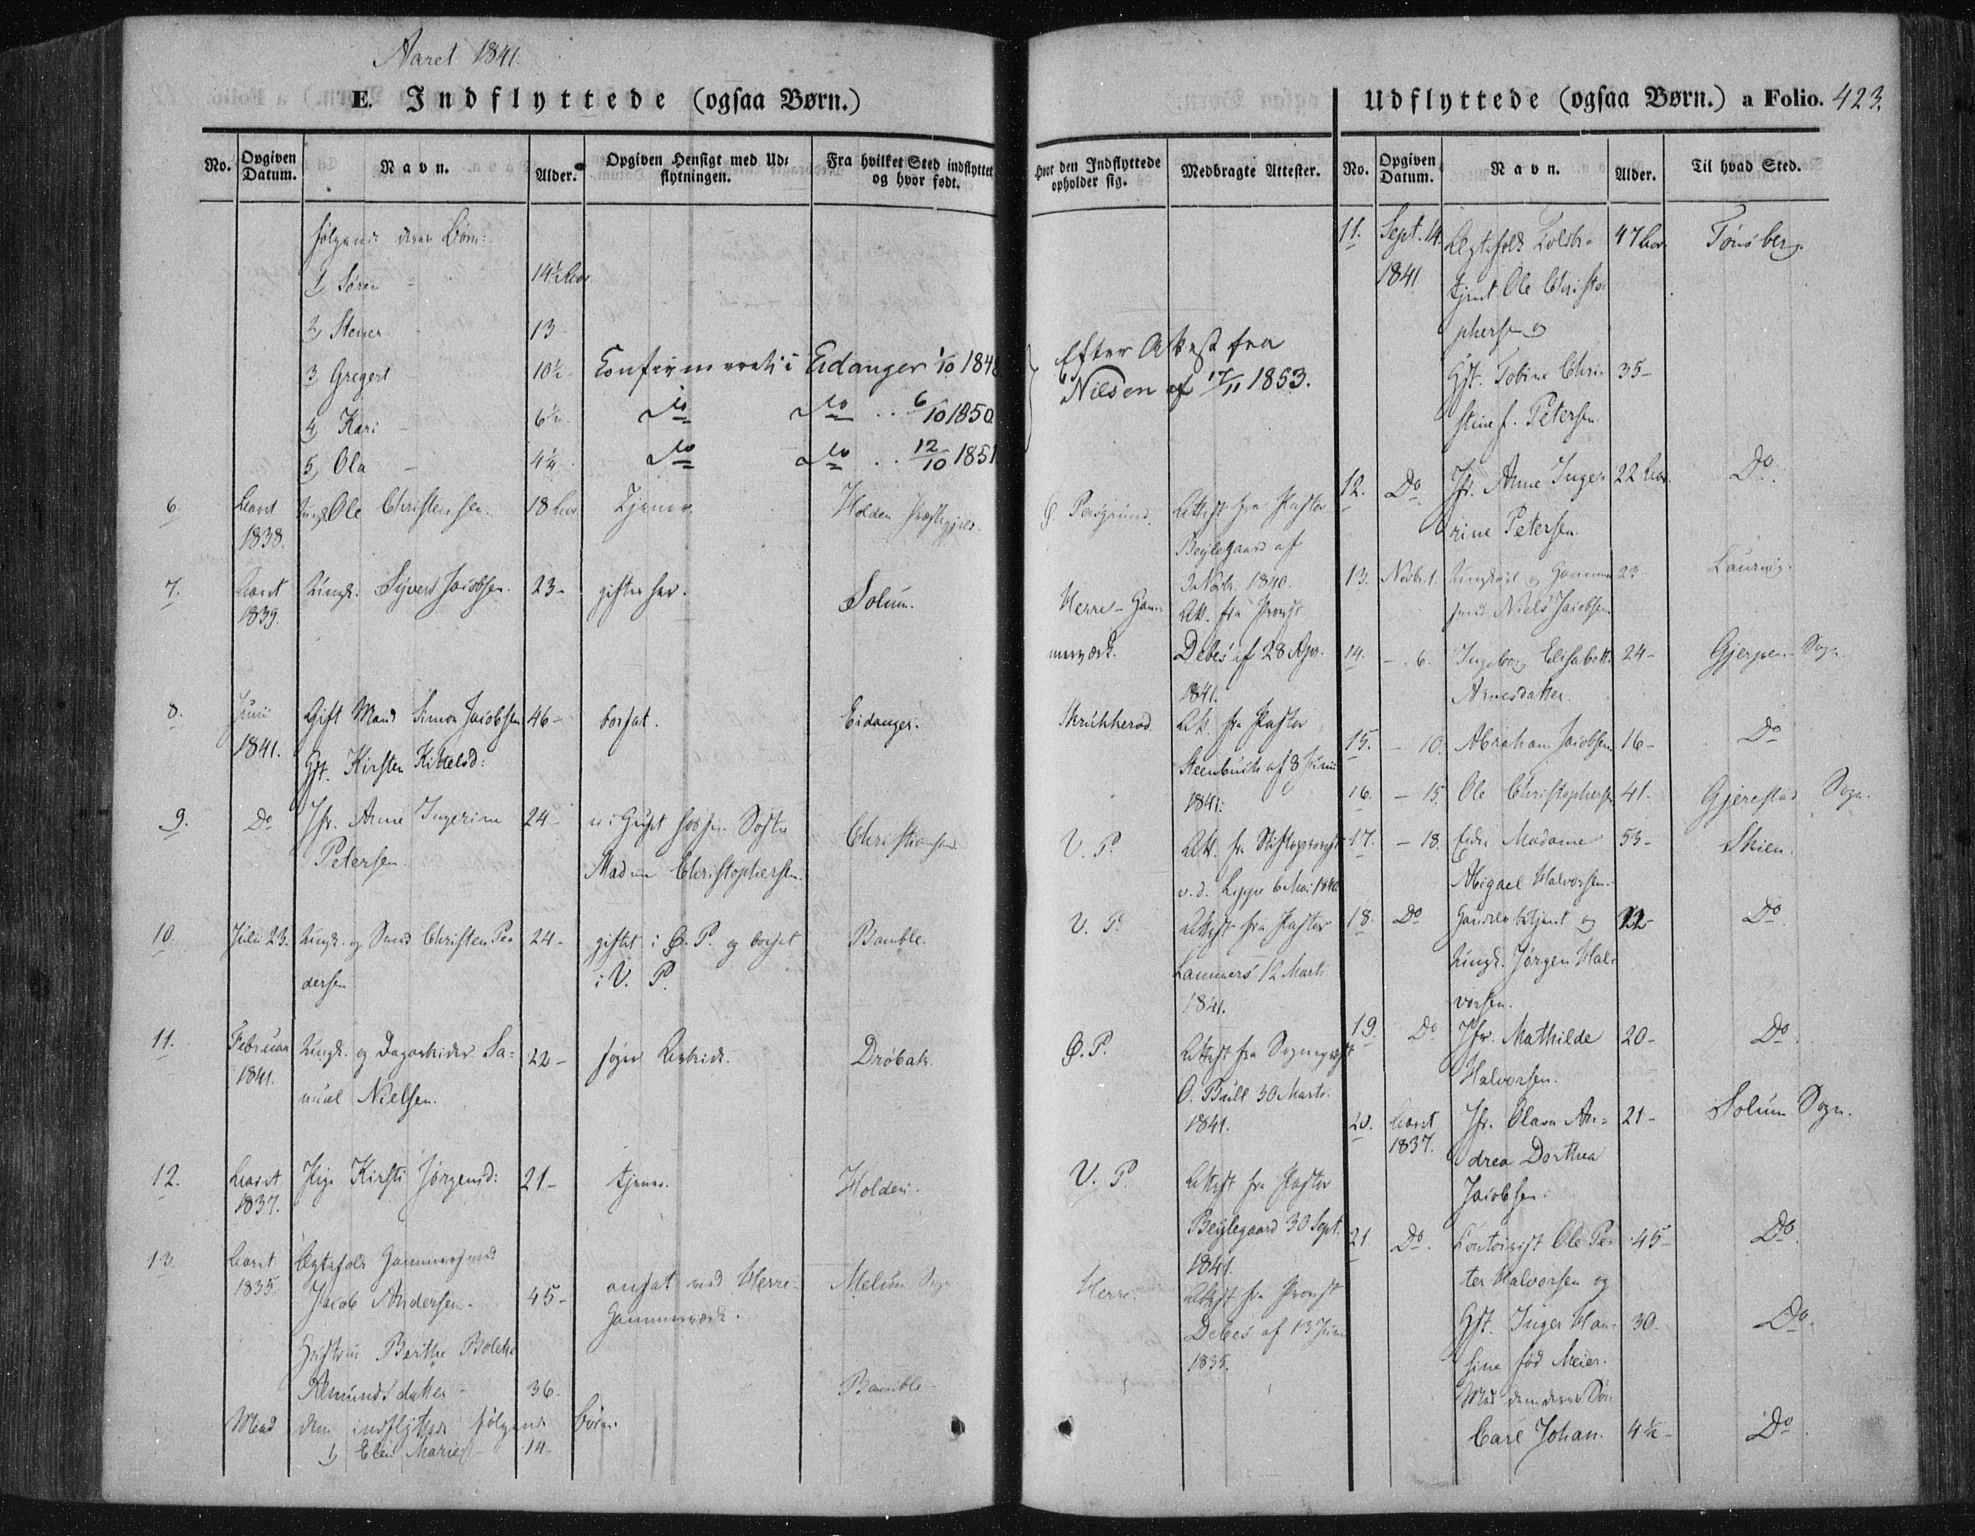 Aaret 1841.
E. Indflyttede (ogsaa Børn.)
No. Opgiven Datum. Navn. Alder. Opgiven Hensigt med Udflytningen. Fra hvilket Sted indflyttet og hvor født.
følgende deres Børn:
1, Søren 14½ Aar
2, Stener 13
3, Gregert 10½ Confirmeret i Eidanger 1/10 1848
4, Kari 6½ do do 6/10 1850
5, Ola 4¼ do do 12/10 1851
6. Aaret Ungk. Ole Christensen. 18 Aar. Tjener Holden Præstegjeld.
1838.
7. Aaret Ungk. Syvert Jacobsen. 23- gifter her. Solum.
1839.
8. Juni Gift Mand Simon Jacobsen 46- bosat. Eidanger.
1841. Gft. Kirsten Kittelsd:
9. Do Jfr. Anne Ingerine 24- i Huset hos sin Søster Christiansand
Petersen. Madm Christophersen.
10. Juli 23. Ungk. og Smed Christen Pe- 24- giftet i Ø. P. og bosat Bamble.
dersen i V. P.
11. Februar Ungk. og Dagarbeider Sa- 22- søger Arbeide. Drøbak.
1841. muel Nielsen.
12. Aaret Pige Kirsti Jørgensd: 21- tjener. Holden.
1837.
13. Aaret Ægtefolk Hammersmed
1835. Jacob Andersen. 45- ansat ved Herre- Melum Sogn
Hammerværk.
Hustru Berthe Bolette
Amundsdatter 36. Bamble
Med dem indflyttede følgende Børn.
1, Elen Marie 14-
Hvor den Indflyttede opholder sig. Medbragte Attester.
Efter Attest fra
Nilsen af 17/11 1853.
Ø. Porsgrund. Attest fra Pastor
Beylegaard af
2 Novbr. 1840.
Herre-Ham- Att. fra Provst
merværk. Debes af 28 Apr.
1841.
Skrukkerød Att. fra Pastor
Steenbuch af 8 Juni
1841.
V. P. Att. fr Stiftsprovst
v. d. Lippe 6 Mai 1840
V. P. Attest fra Pastor
Lammers 12 Marts
1841.
Ø. P. Attest fra Sognepræst
O. Bull 30 Marts.
1841.
V. P. Attest fra Pastor
Beylegaard 30 Sept.
1841.
Herre. Attest fra Provst
Debes af 13 Juni
1835.
Udflyttede (ogsaa Børn.) a Folio. 423.
No. Opgiven Datum. Navn. Alder. Til hvad Sted.
11. Sept. 14. Ægtefolk Toldbe- 47 Aar Tønsberg.
1841 tjent Ole Christo-
phersen og
Gft. Tobine Chri- 35-
stine f. Petersen.
12. Do Jfr. Anne Inge- 22 Aar. Do
rine Petersen.
13. Novbr. 1. Ungkarl og Hammer- 23- Laurvig.
smed Niels Jacobsen
14. - 6. Ingeborg Elisabeth 24- Gjerpen Sogn.
Arnesdatter.
15. - 10. Abraham Jacobsen 16- Do
16. - 15. Ole Christophersen 41. Gjerestad Sogn.
17. - 18. Enke Madame 53- Skien.
Abigael Halvorsen.
18. Do Handelsbetjent og Do
Ungk. Jørgen Hal-
vorsen.
19. Do Jfr. Mathilde 20- Do
Halvorsen.
20. Aaret Jfr. Olava An- 21- Solum Sogn.
1837. drea Dorthea
Jacobsen.
21 Do. Contorist Ole Pe- 45- Do.
ter Halvorsen og
Gft. Inger Han- 30. Do.
sine fød Meier.
Med dem deres Søn
Carl Johan. 4½- Do.